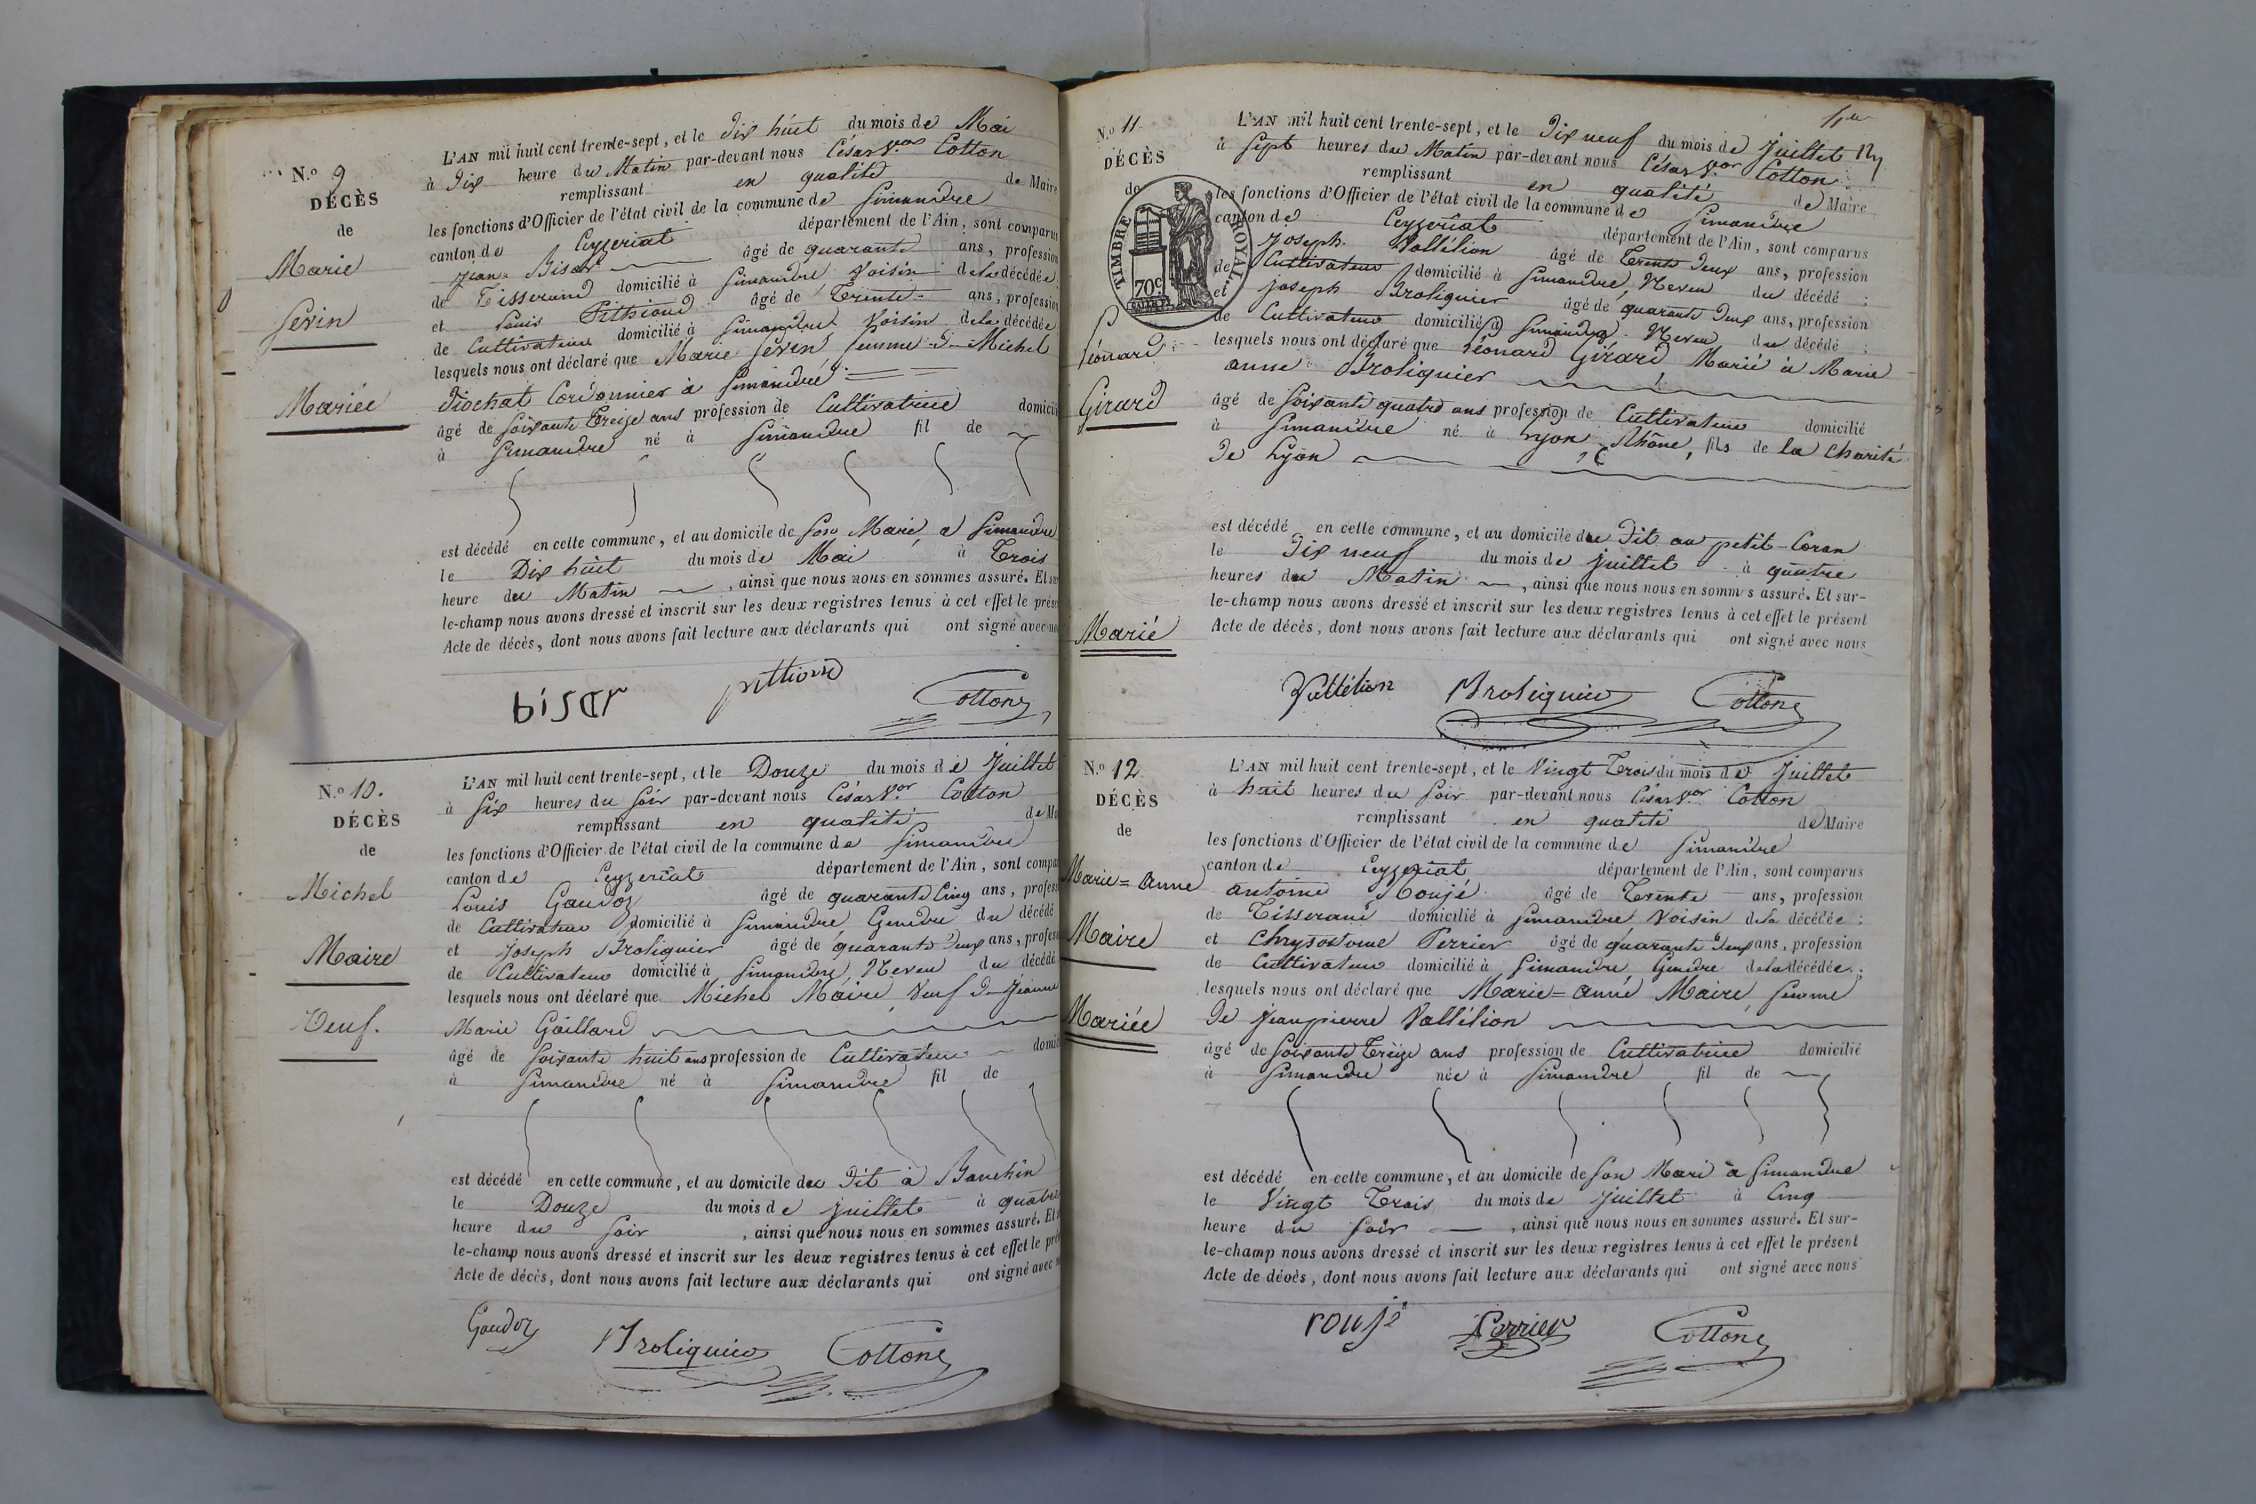 N.o 9
DÉCÈS
de
Marie
Sevin
Mariée
L'AN mil huit cent trente-sept, et le dix huit du mois de Mai
à Dix heure du Matin par-devant nous César V.or Cotton
remplissant en qualité de Maire
les fonctions d'Officier de l'état civil de la commune de Simandre
canton de Ceyzeriat département de l'Ain, sont comparus
Jean Bisar âgé de quarante ans, profession
de Tisserand domicilié à Simandre Voisin de la décédée
et Louis Pithioud âgé de Trente ans, profession
de Cultivateur domicilié à Simandre Voisin de la décédée
lesquels nous ont déclaré que Marie Sevin femme de Michel
Diochat Cordonnier à Simandre
âgé de Soixante Treize ans profession de Cultivatrice domicilié
à Simandre né à Simandre fil de
est décédé en cette commune, et au domicile de son Marié, à Simandre
le Dix huit du mois de Mai à Trois
heure du Matin, ainsi que nous nous en sommes assuré. Et sur
le-champ nous avons dressé et inscrit sur les deux registres tenus à cet effet le prése
Acte de décès, dont nous avons fait lecture aux déclarants qui ont signé avec nou
bisar pittioud Cotton
N.o 10.
DÉCÈS
de
Michel
Maire
Veuf.
L'AN mil huit cent trente-sept, et le Douze du mois de Juillet
à Six heures du Soir par-devant nous César V.or Cotton
remplissant en qualité de Ma
les fonctions d'Officier de l'état civil de la commune de Simandre
canton de Ceyzeriat département de l'Ain, sont compa
Louis Gaudoz âgé de quarante Cinq ans, profess
de Cultivateur domicilié à Simandre Gendre du décédé
et Joseph Broliquier âgé de quarante Deux ans, profess
de Cultivateur domicilié à Simandre, Neveu du décédé
lesquels nous ont déclaré que Michel Maire, Veuf de Jeanne
Marie Gaillard
âgé de Soixante huit ans profession de Cultivateur domic
à Simandre né à Simandre fil de
est décédé en cette commune, et au domicile du Dit à Banchin
le Douze du mois de Juillet à quatre
heure du Soir, ainsi que nous nous en sommes assuré. Et s
le-champ nous avons dressé et inscrit sur les deux registres tenus à cet effet le pré
Acte de décès, dont nous avons fait lecture aux déclarants qui ont signé avec n
Gaudoz Broliquier Cotton
N.o 11
DÉCÈS
de
TIMBRE ROYAL
70c
Léonard
Girard
Marié
L'AN mil huit cent trente-sept, et le Dix neuf du mois de Juillet
à Sept heures du Matin par-devant nous César V.or Cotton
remplissant en qualité de Maire
les fonctions d'Officier de l'état civil de la commune de Simandre
canton de Ceyzeriat département de l'Ain, sont comparus
Joseph Vallélion âgé de Trente Deux ans, profession
de Cultivateur domicilié à Simandre, Neveu du décédé ;
et Joseph Broliquier âgé de quarante Deux ans, profession
de Cultivateur domicilié à Simandre Neveu du décédé ;
lesquels nous ont déclaré que Léonard Girard Marié à Marie
anne Broliquier
âgé de Soixante quatre ans profession de Cultivateur domicilié
à Simandre né à Lyon Rhône, fils de la Charité
De Lyon
est décédé en cette commune, et au domicile du Dit au petit-Coran
le Dix neuf du mois de Juillet à quatre
heures du Matin, ainsi que nous nous en sommes assuré. Et sur-
le-champ nous avons dressé et inscrit sur les deux registres tenus à cet effet le présent
Acte de décès, dont nous avons fait lecture aux déclarants qui ont signé avec nous
Vallélion Broliquier Cotton
N.o 12
DÉCÈS
de
Marie=Anne
Maire
Mariée
L'AN mil huit cent trente-sept, et le Vingt Trois du mois de Juillet
à huit heures du Soir par-devant nous César V.or Cotton
remplissant en qualité de Maire
les fonctions d'Officier de l'état civil de la commune de Simandre
canton de Ceyzeriat département de l'Ain, sont comparus
antoine Roujé âgé de Trente ans, profession
de Tisserand domicilié à Simandre Voisin de la décédée ;
et Chrysostome Perrier âgé de quarante Deux ans, profession
de Cultivateur domicilié à Simandre, Gendre de la décédée ;
lesquels nous ont déclaré que Marie=anne Maire, femme
De Jeanpierre Vallélion
âgé de Soixante Treize ans profession de Cultivatrice domicilié
à Simandre née à Simandre fil de
est décédé en cette commune, et au domicile de son Mari à Simandre
le Vingt Trois du mois de Juillet à Cinq
heure du Soir, ainsi que nous nous en sommes assuré. Et sur-
le-champ nous avons dressé et inscrit sur les deux registres tenus à cet effet le présent
Acte de décès, dont nous avons fait lecture aux déclarants qui ont signé avec nous
roujé Perrier Cotton